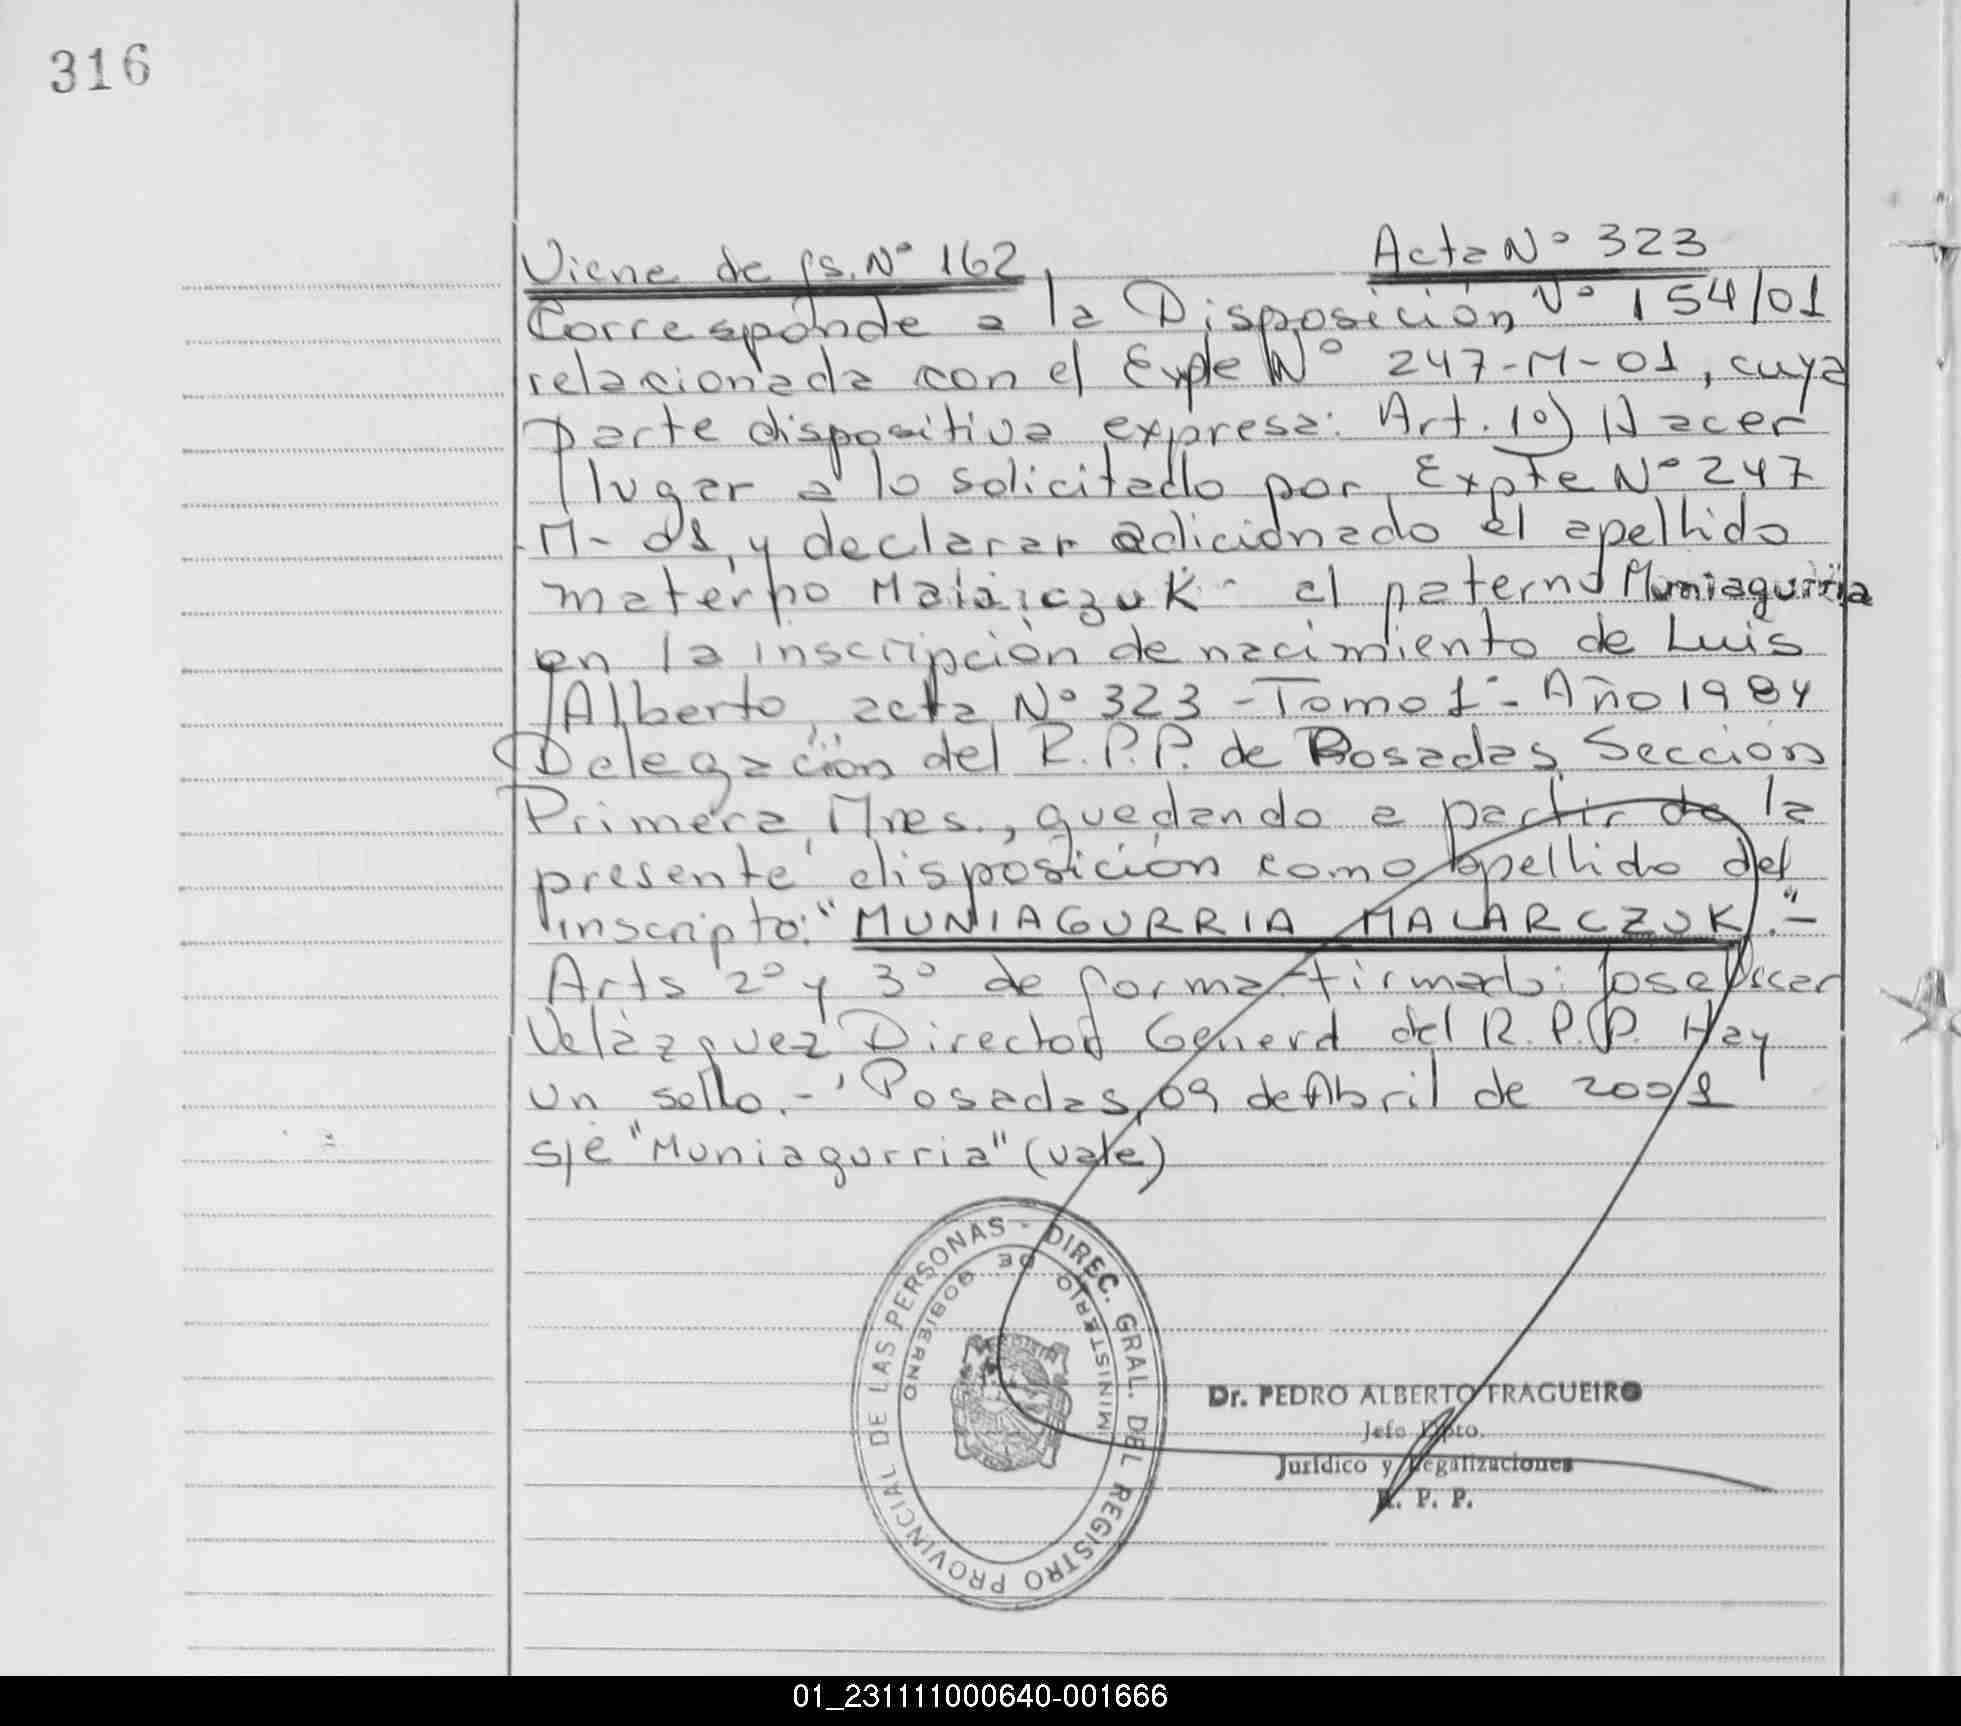 316
Viene de fs. Nº 162
Acta Nº 323
Corresponde a la Disposición Nº 154/01
relacionada con el Expte Nº 247-M-01, cuya
parte dispositiva expresa: Art. 1º) Hacer
lugar a lo solicitado por Expte Nº 247
M-01, y declarar adicionado el apellido
materno al paterno Muniagurria
en la inscripción de nacimiento de Luis
Alberto, acta Nº 323 - Tomo 1º - Año 1984
Delegación del R.P.P. de Posadas, Sección
Primera, Mnes., quedando a partir de la
presente disposición como apellido del
inscripto: "MUNIAGURRIA MALARCZUK".-
Arts 2º y 3º de forma. Firmado: Jose Oscar
Velázquez Director General del R.P.P. Hay
un sello.- Posadas, 09 de Abril de 2001
s/e "Muniagurria" (vale)
DIREC. GRAL. DEL REGISTRO PROVINCIAL DE LAS PERSONAS -
MINISTERIO DE GOBIERNO
Dr. PEDRO ALBERTO FRAGUEIRO
Jefe Dpto.
Jurídico y Legalizaciones
R. P. P.
01_231111000640-001666